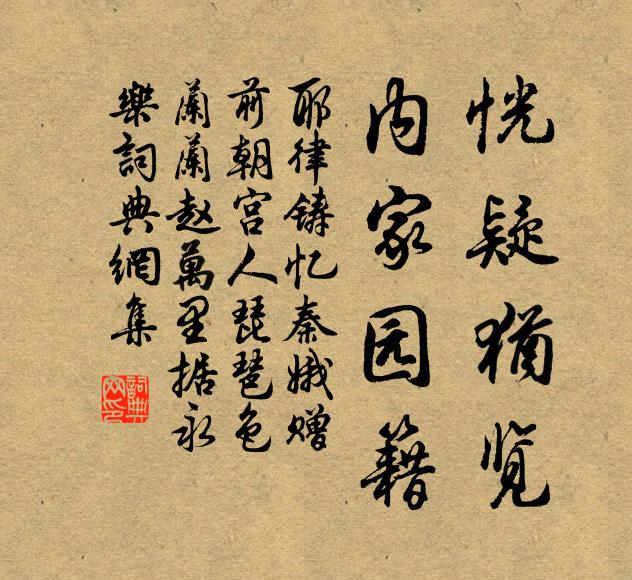 恍疑犹览
内家园籍
耶律铸忆秦娥赠
前朝宫人琵琶色
兰兰赵万里据永
乐词典網集
詞典網印